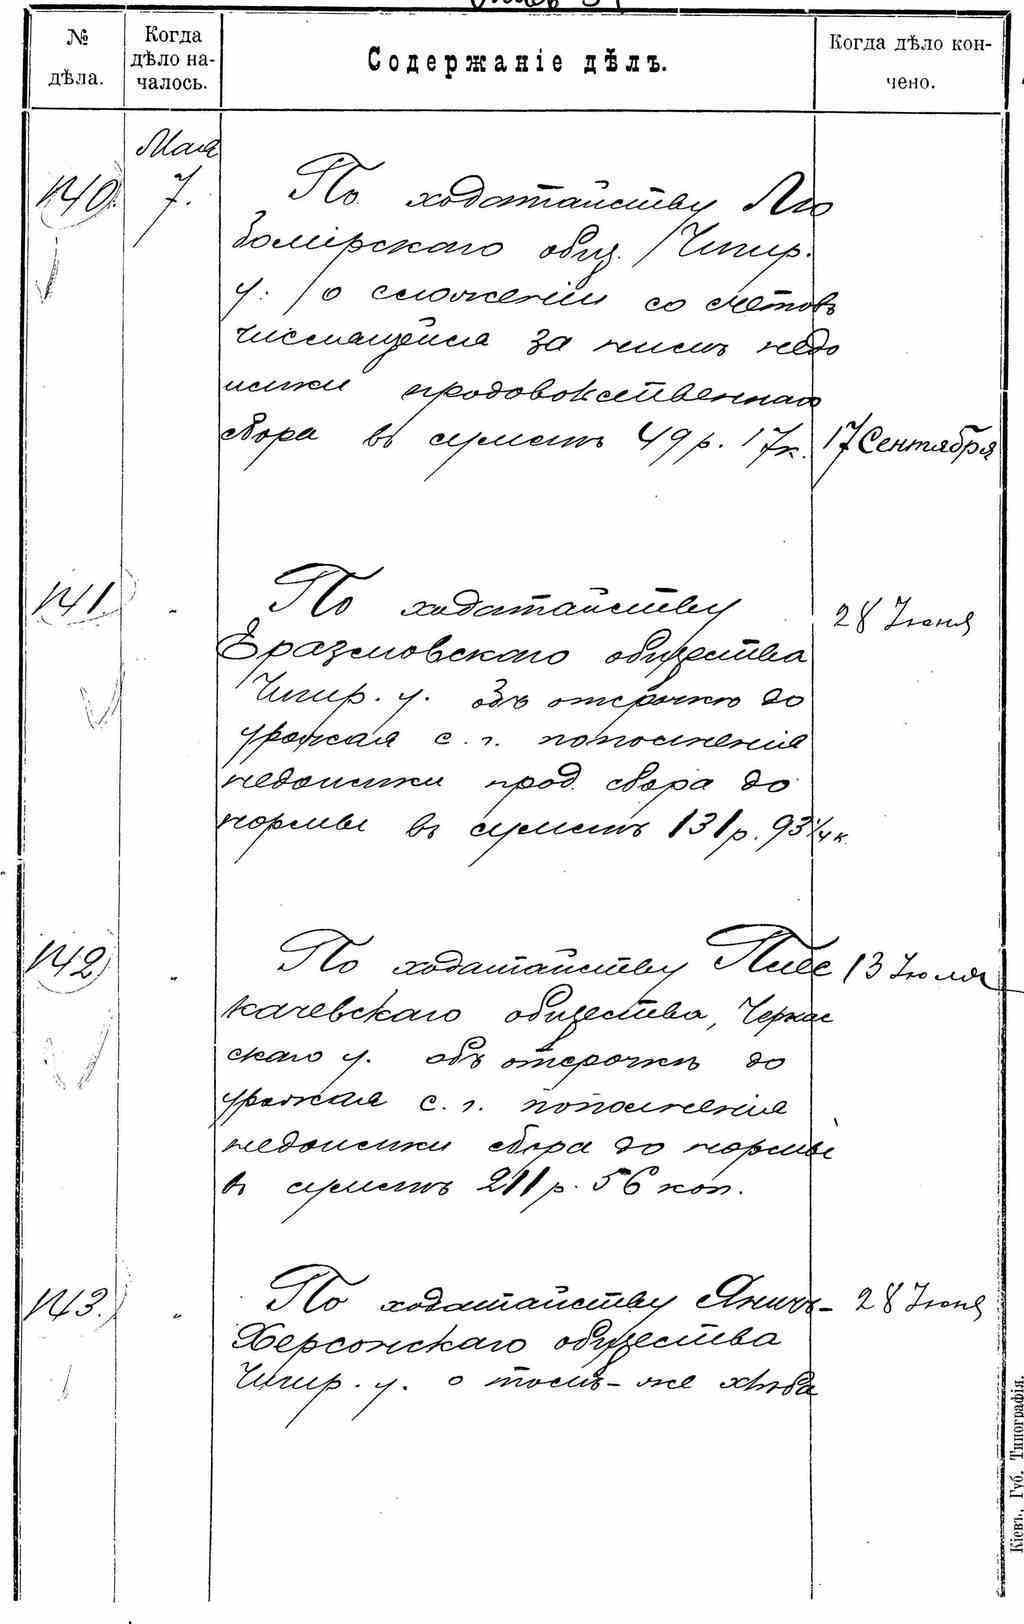 № дѣла.
Когда дѣло началось.
Содержаніе дѣлъ.
Когда дѣло кончено.
Мая
140. 7. По ходатайству Лю
бомірскаго общ. /Чигир.
у:/ о сложеніи со счетовъ
числящейся за нимъ недо
имки продовольственнаго
сбора въ суммѣ 49 р. 17 к. 17 Сентября
141. " По ходатайству 28 Іюня
Еразмовскаго общества
Чигир. у. объ отсрочкѣ до
урожая с. г. пополненія
недоимки прод. сбора до
нормы въ суммѣ 131 р. 93 1/4 к.
142. " По ходатайству Пле 13 Іюля
качевскаго общества, Черкас
скаго у. объ отсрочкѣ до
урожая с. г. пополненія
недоимки сбора до нормы
въ суммѣ 211 р. 56 коп.
143. " По ходатайству Яничъ- 28 Іюня
Херсонскаго общества
Чигир. у. о томъ-же хлѣба
Кіевъ, Губ. Типографія.